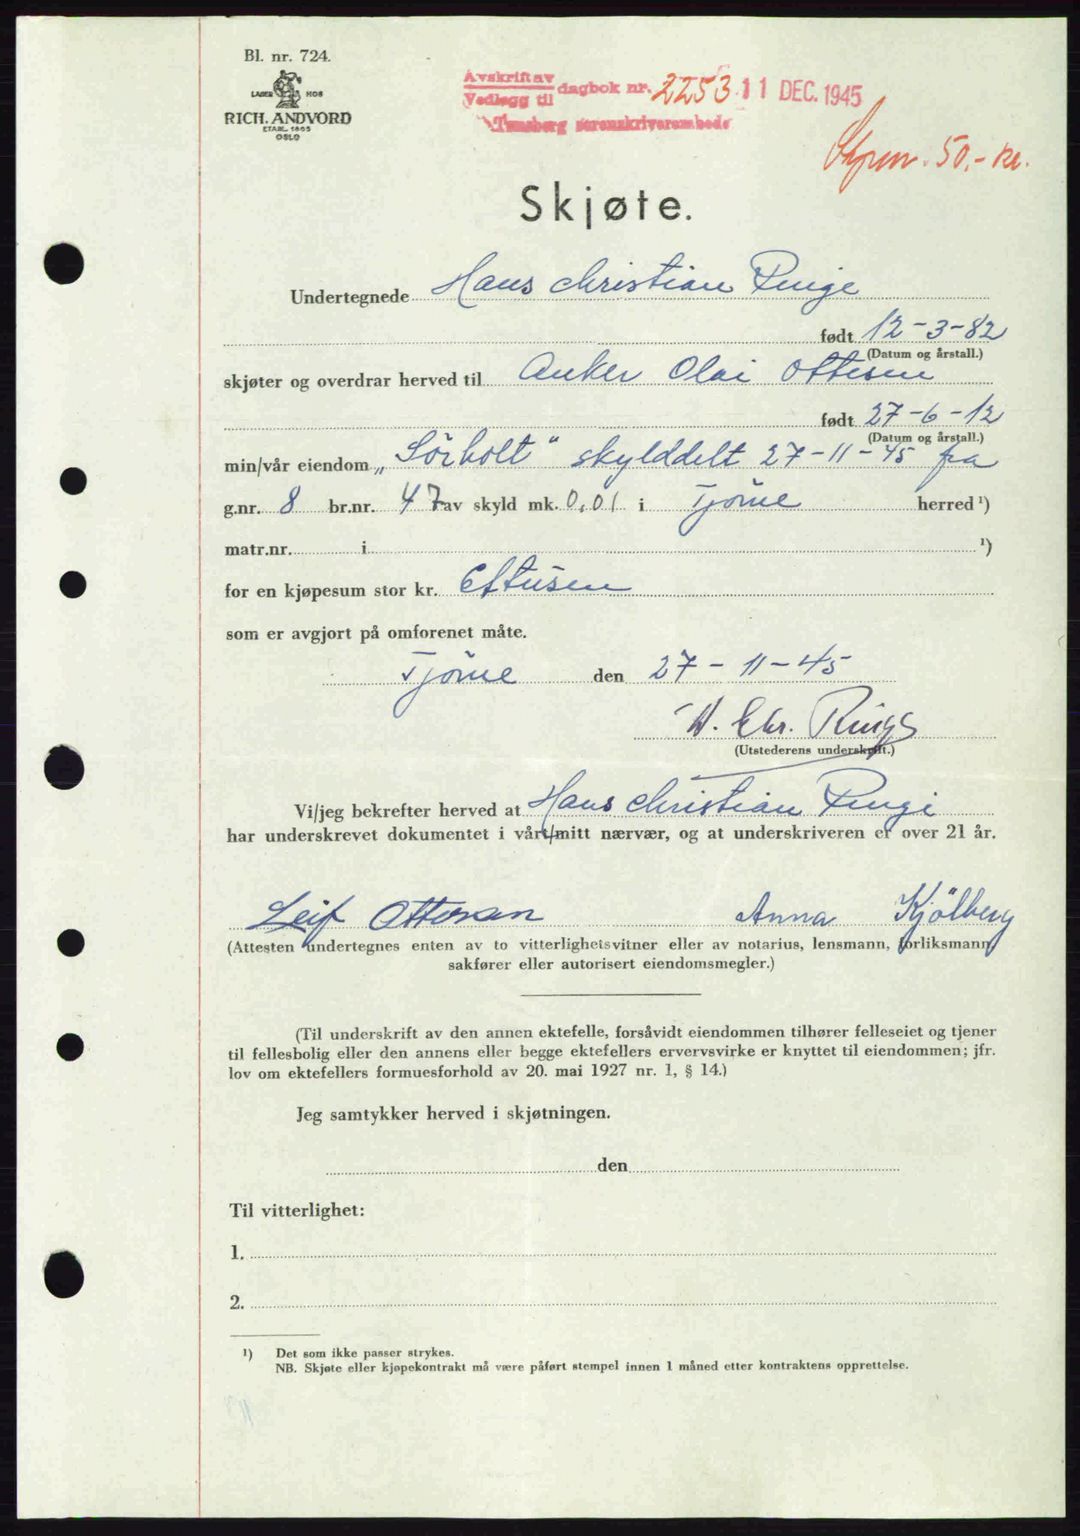 Bl. nr. 724.
LAGER HOS
RICH. ANDVORD
ETABL. 1865
OSLO
Avskrift av
Vedlegg til dagbok nr. 2253 11 DEC. 1945
Tønsberg sorenskriverembede
50.- kr.
Skjøte.
Undertegnede Hans Christian Ringe
født 12-3-82
(Datum og årstall.)
skjøter og overdrar herved til Anker Olai Ottesen
født 27-6-12
(Datum og årstall.)
min/vår eiendom „Sörholt“ skylddelt 27-11-45 fra
g.nr. 8 br.nr. 47 av skyld mk. 0,01 i Tjöme herred ¹)
matr.nr. i ¹)
for en kjøpesum stor kr. Ettusen
som er avgjort på omforenet måte.
Tjöme den 27-11-45
H. Chr. Ringe
(Utstederens underskrift.)
Vi/jeg bekrefter herved at Hans Christian Ringe
har underskrevet dokumentet i vårt/mitt nærvær, og at underskriveren er over 21 år.
Leif Ottesen Anna Kjölberg
(Attesten undertegnes enten av to vitterlighetsvitner eller av notarius, lensmann, forliksmann,
sakfører eller autorisert eiendomsmegler.)
(Til underskrift av den annen ektefelle, forsåvidt eiendommen tilhører felleseiet og tjener
til fellesbolig eller den annens eller begge ektefellers ervervsvirke er knyttet til eiendommen; jfr.
lov om ektefellers formuesforhold av 20. mai 1927 nr. 1, § 14.)
Jeg samtykker herved i skjøtningen.
den
Til vitterlighet:
1.
2.
¹) Det som ikke passer strykes.
NB. Skjøte eller kjøpekontrakt må være påført stempel innen 1 måned etter kontraktens opprettelse.